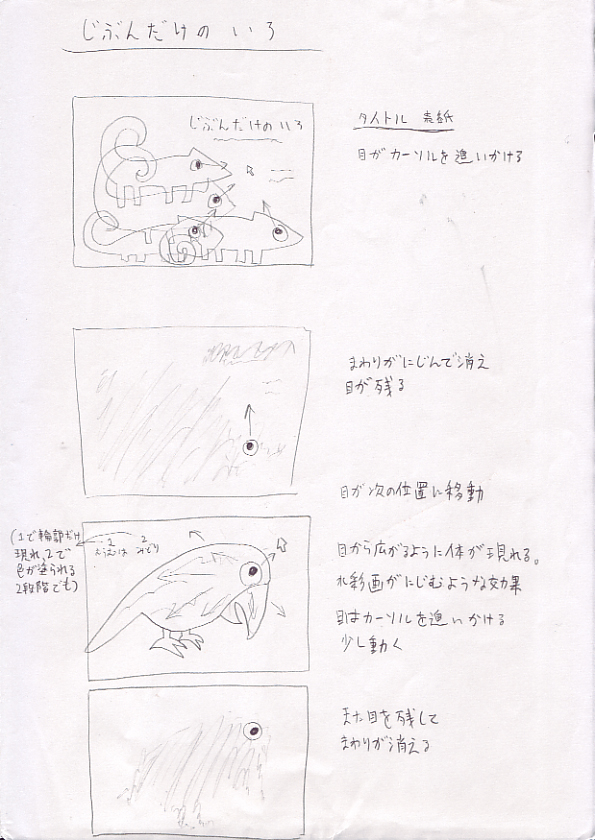 じぶんだけの いろ
じぶんだけの いろ
タイトル 表紙
目がカーソルを追いかける
まわりがにじんで消え
目が残る
目が次の位置に移動
(1で輪郭だけ
現れ、2で
色が塗られる
2段階でも)
1 2
おうむは みどり
目から広がるように体が現れる。
水彩画がにじむような効果
目はカーソルを追いかける
少し動く
また目を残して
まわりが消える